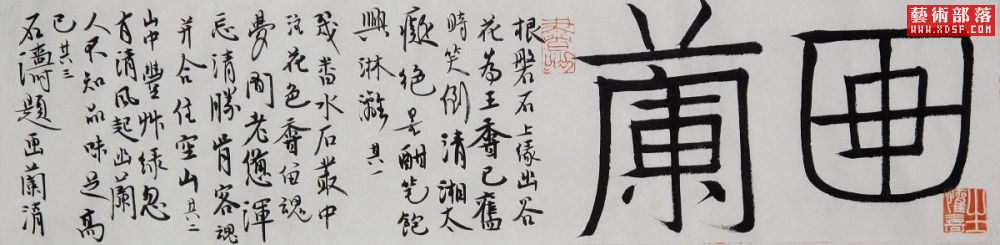 藝術部落
WWW.XDSF.COM
画蘭
根磐石上緣出谷
花為王香已舊
時笑倒清湘太
癡絕是酣笔飽
興淋漓 其一
幾番水石叢中
花色香魂
夢閒老憊渾
忘清勝肯容魂
并合住空山 其二
山中豐艸緑忽
有清風起出蘭
人不知品味足高
已 其三
石濤題画蘭清